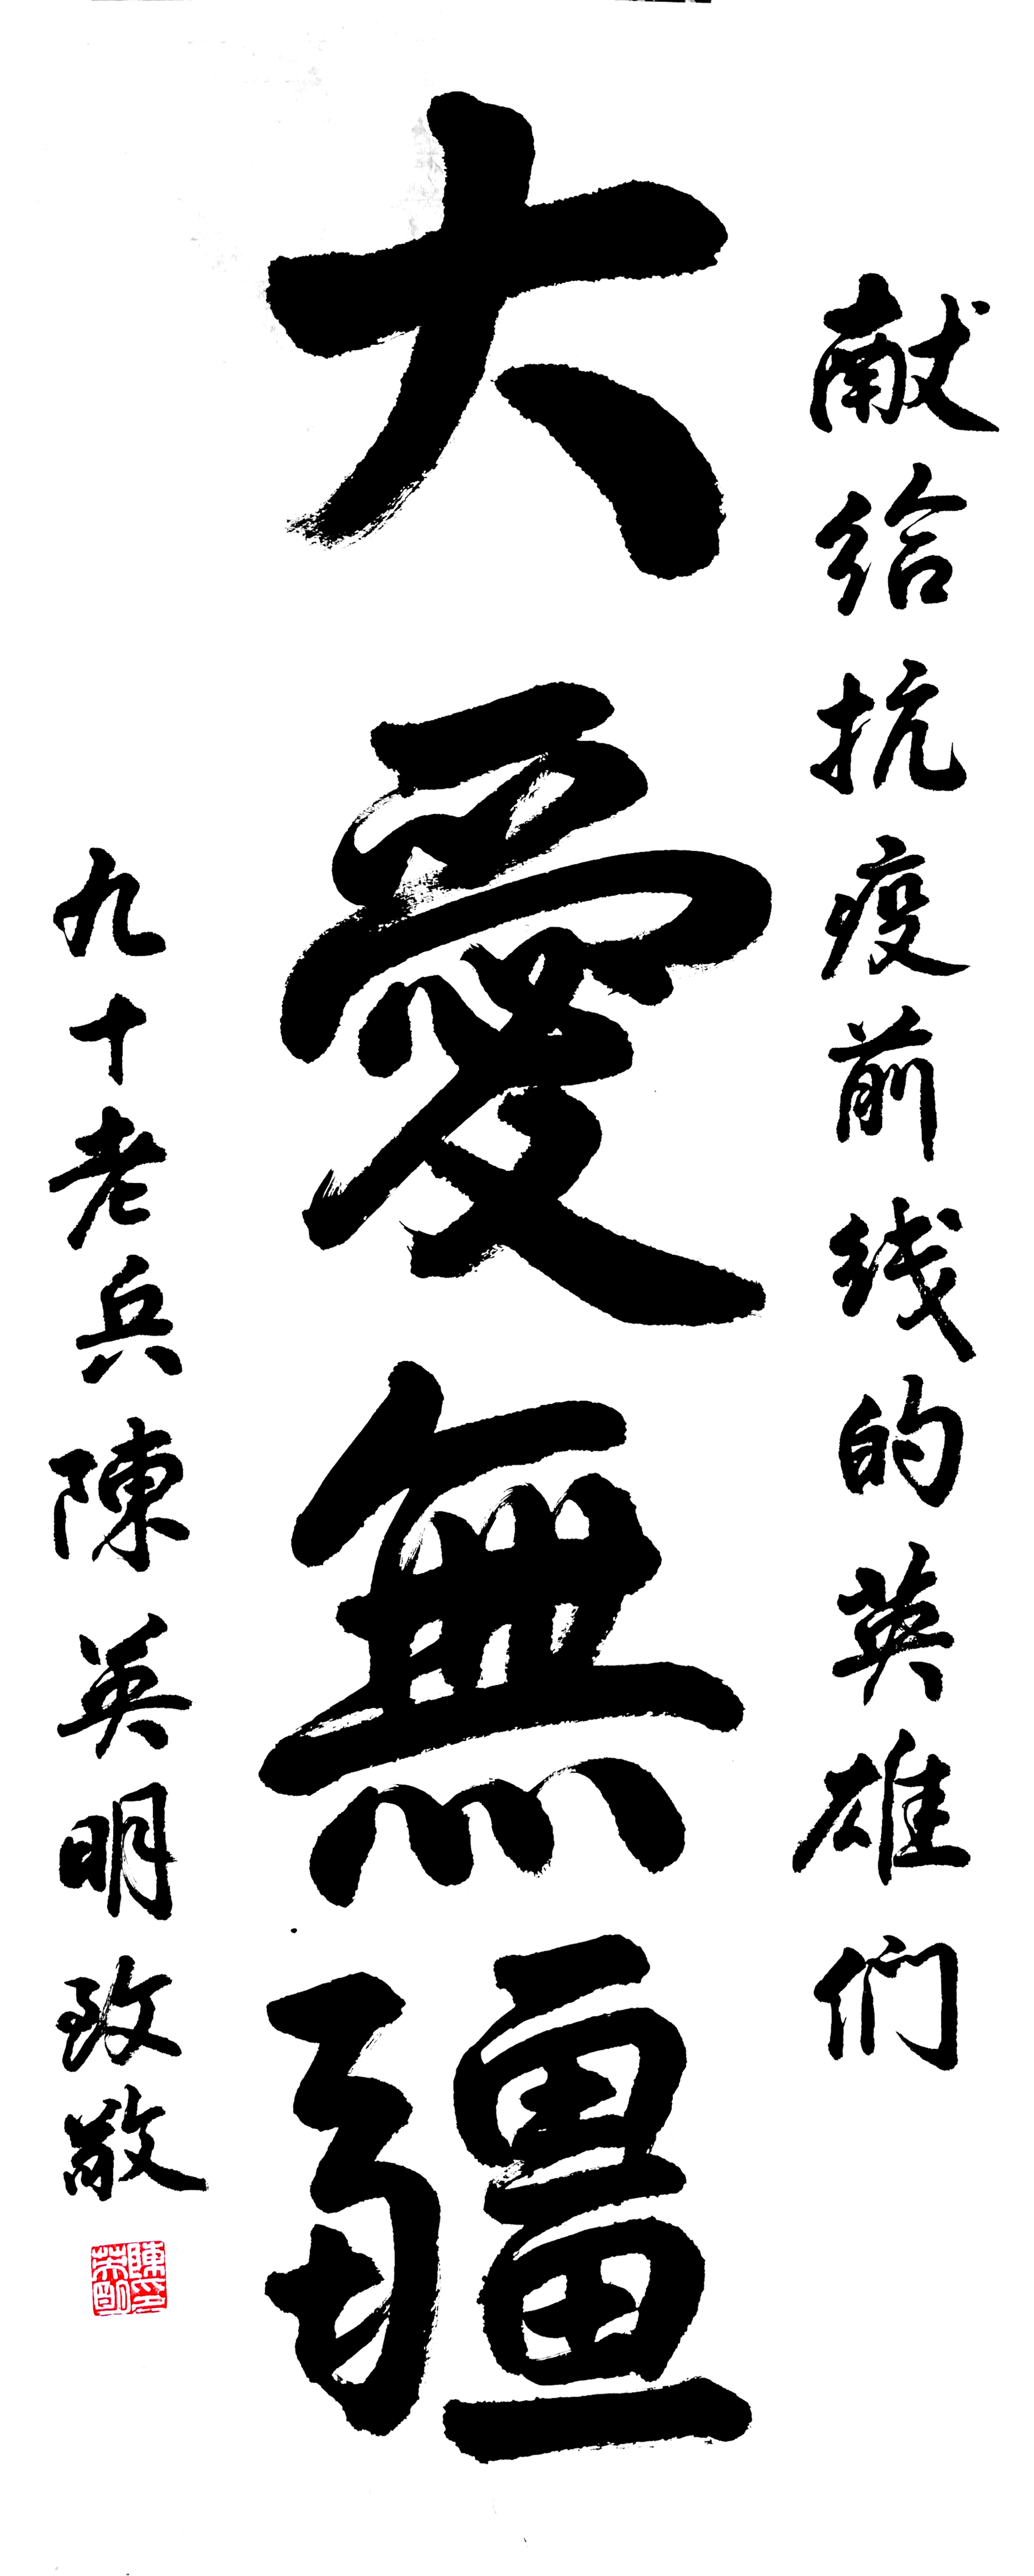 献给抗疫前线的英雄们
大愛無疆
九十老兵陳英明致敬
陳英明印